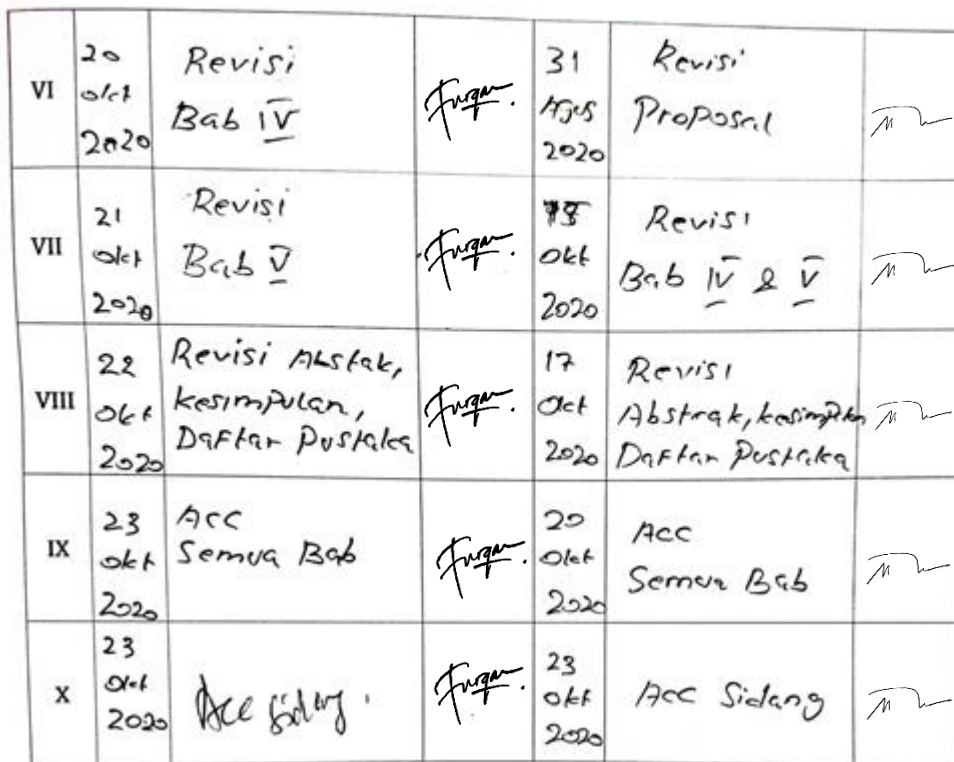 VI
20
Okt
2020
Revisi
Bab IV
Furqan.
31
Agus
2020
Revisi
Proposal
VII
21
Okt
2020
Revisi
Bab V
Furqan.
Okt
2020
Revisi
Bab IV & V
VIII
22
Okt
2020
Revisi Abstak,
kesimpulan,
Daftar Pustaka
Furqan.
17
Okt
2020
Revisi
Abstrak, kesimplan
Daftar Pustaka
IX
23
Okt
2020
Acc
Semua Bab
Furqan.
20
Okt
2020
Acc
Semua Bab
X
23
Okt
2020
Acc Sidang.
Furqan.
23
Okt
2020
Acc Sidang